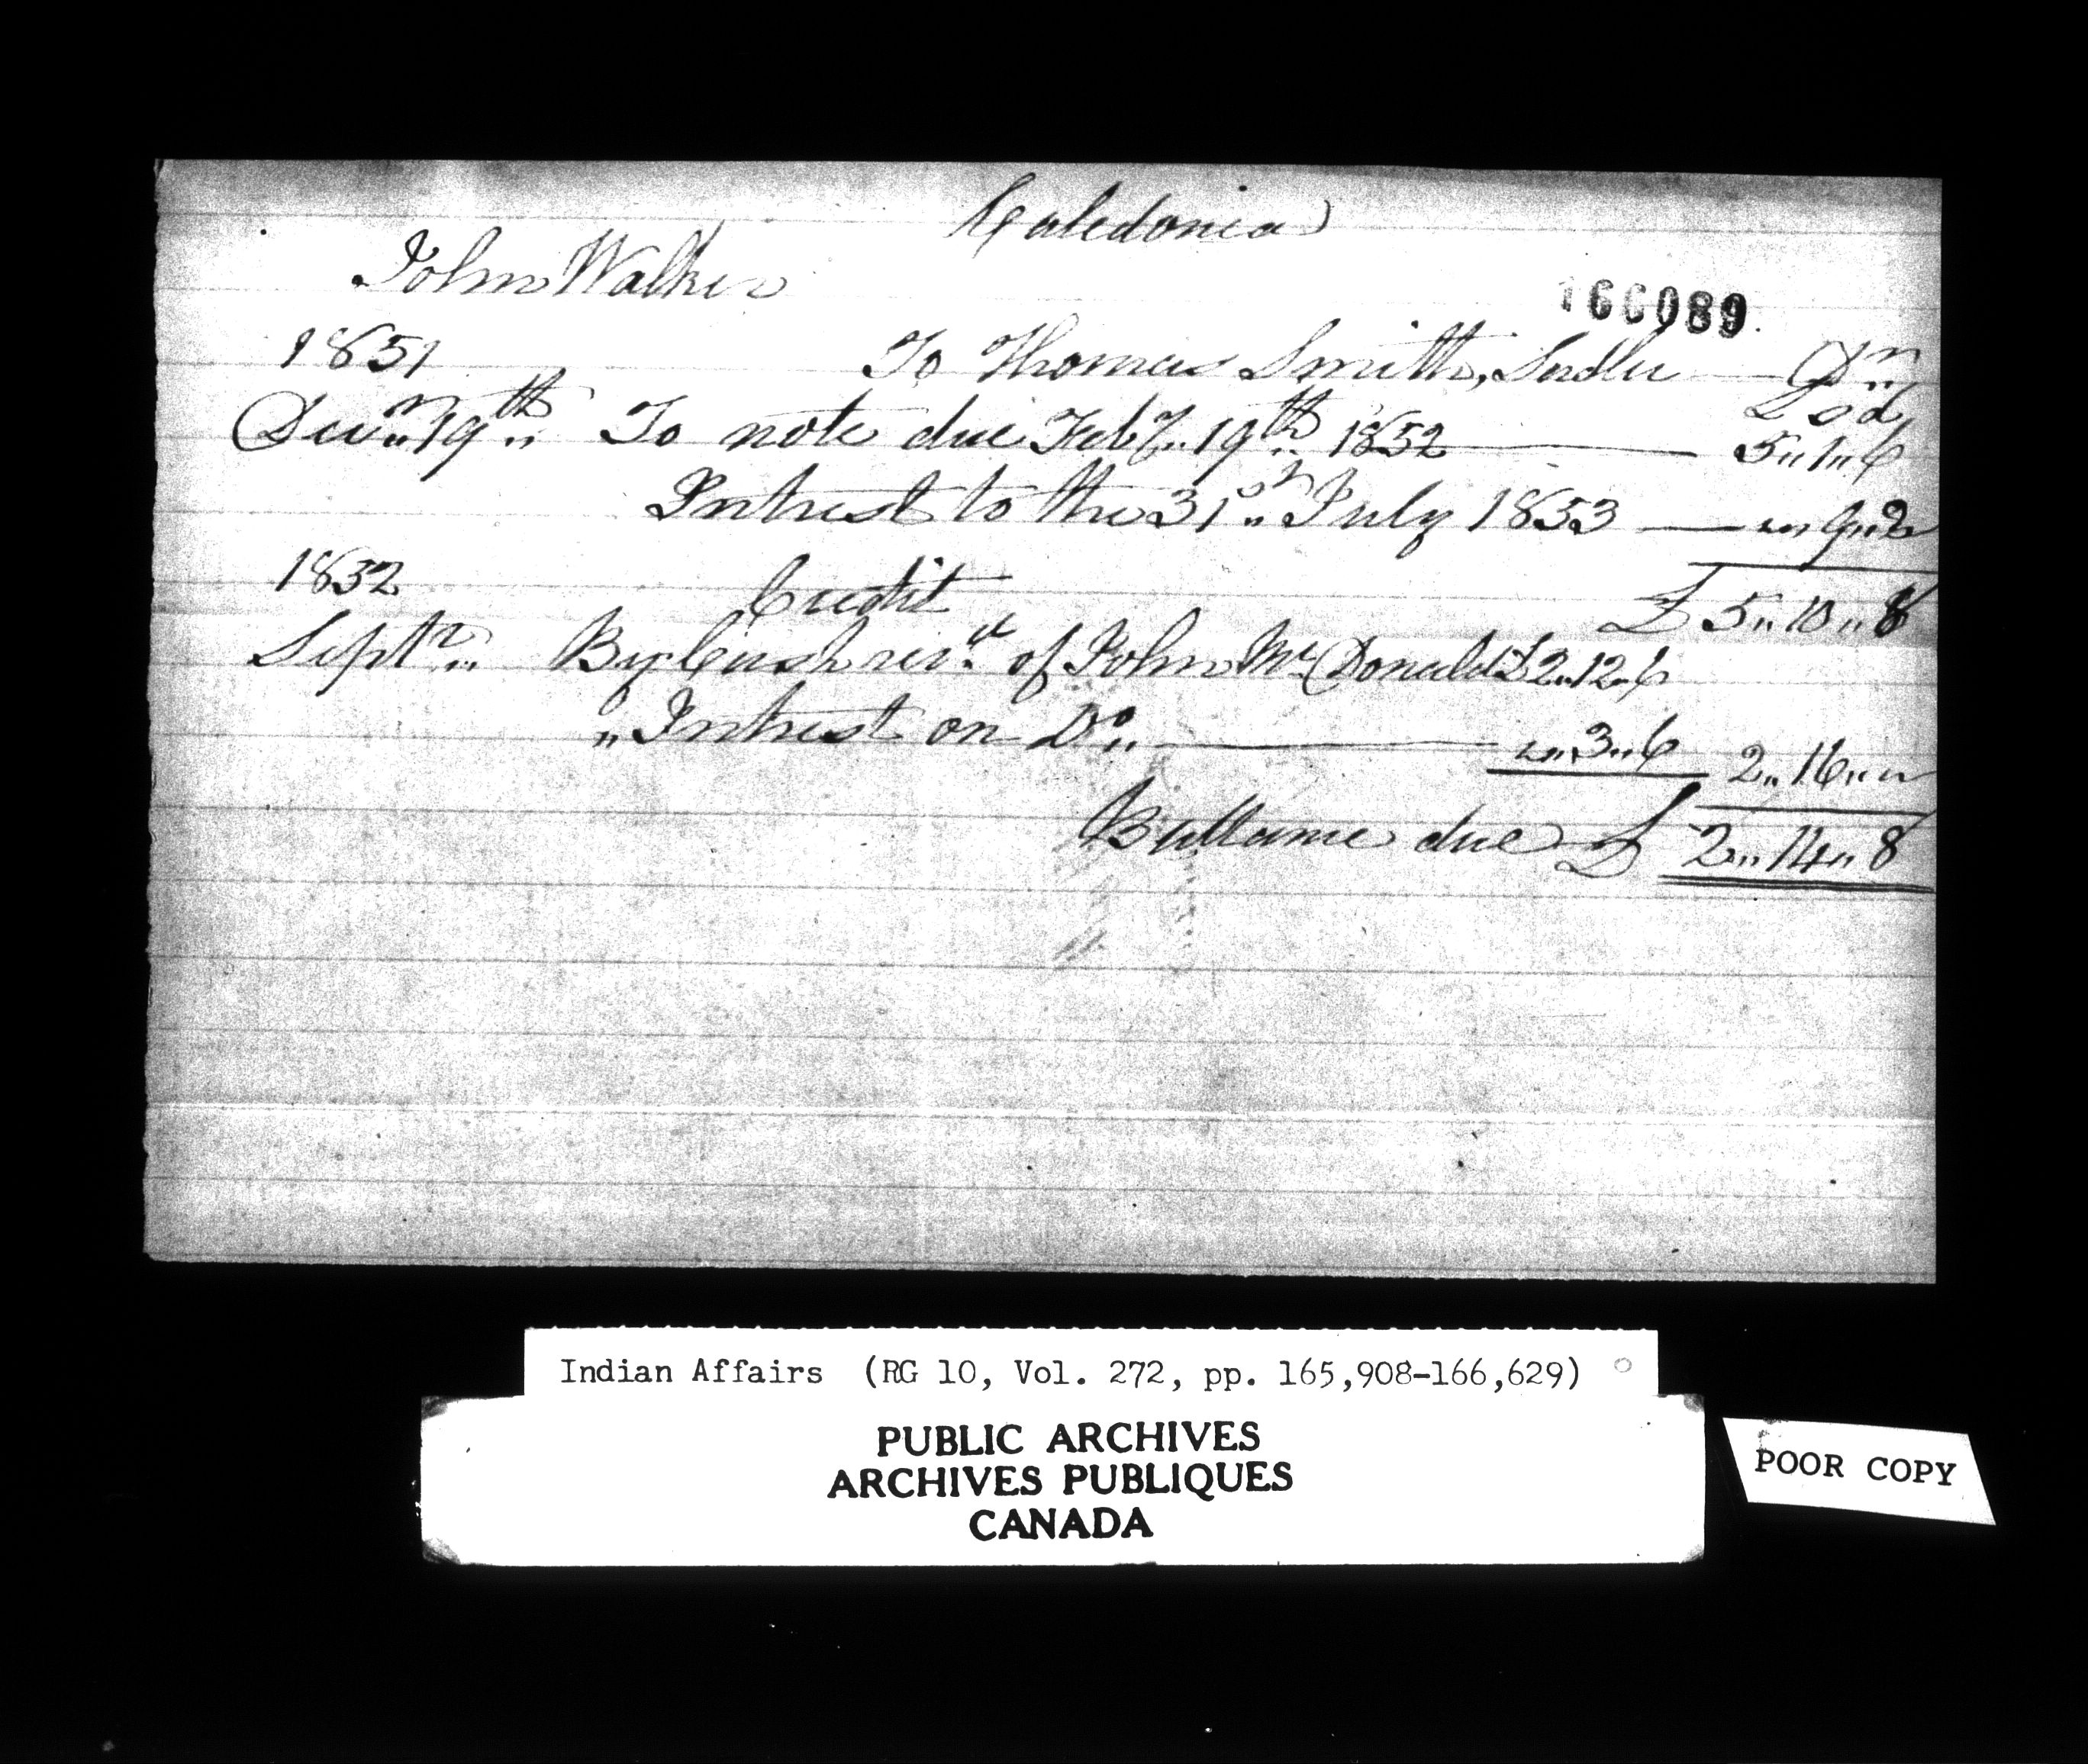 Caledonia
John Walker
166089
1851 To Thomas Smith, Dr
£ s d
Decm 19th To note due Feby 19th 1852 5 " 1 " 6
Intrest to the 31st July 1853 " 9 " 2
1852 Credit £ 5 " 10 " 8
Septr By Cash recd of John McDonald £2 " 12 " 6
" Intrest on Do " 3 " 6 2 " 16 " "
Ballance due £ 2 " 14 " 8
Indian Affairs (RG 10, Vol. 272, pp. 165,908-166,629)
PUBLIC ARCHIVES
ARCHIVES PUBLIQUES
CANADA
POOR COPY